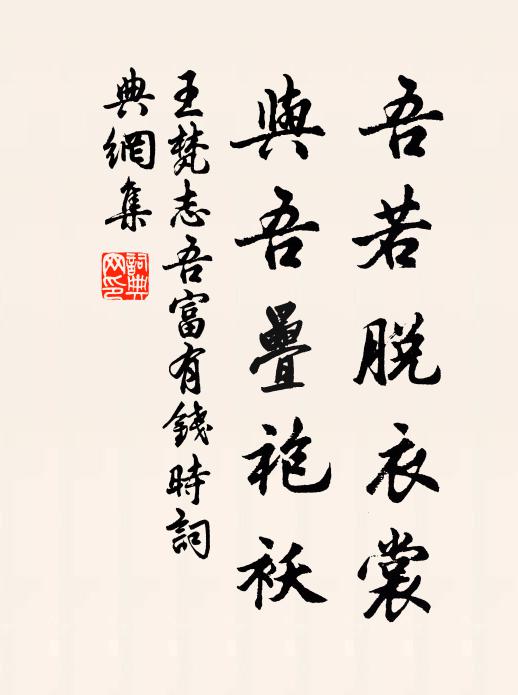 吾若脱衣裳
與吾疊袍袄
王梵志吾富有錢時詞
典網集
詞典网印